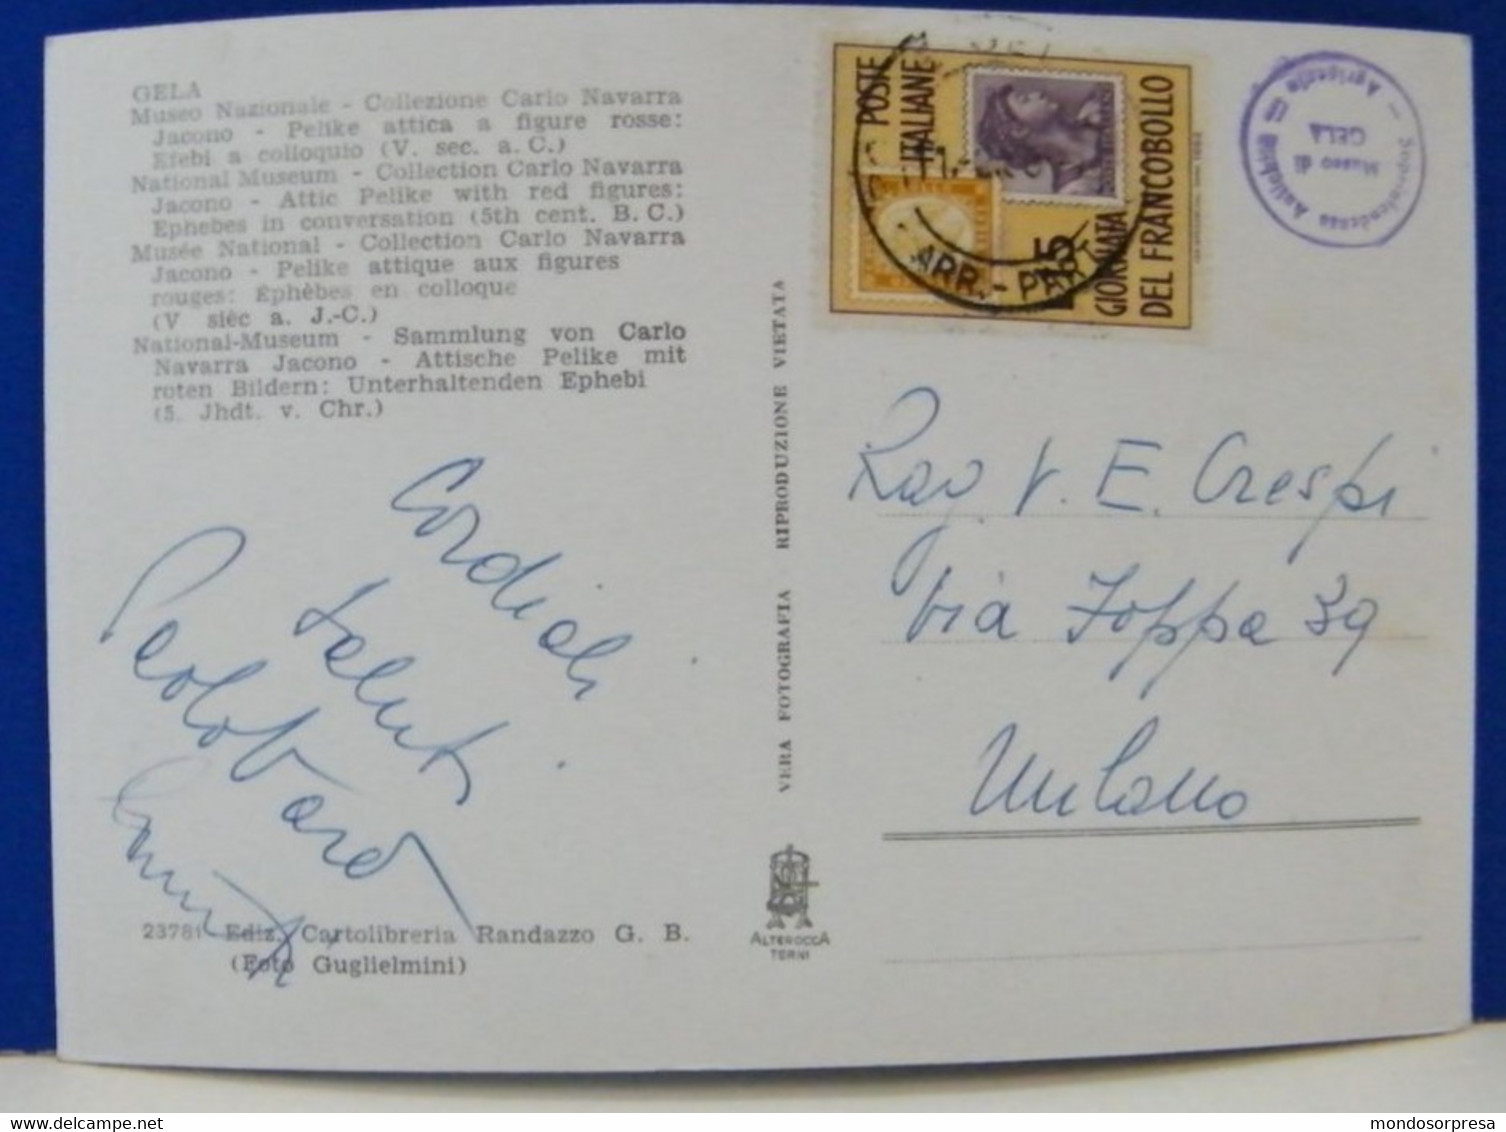 GELA
Museo Nazionale - Collezione Carlo Navarra
Jacono - Pelike attica a figure rosse:
Efebi a colloquio (V. sec. a. C.)
National Museum - Collection Carlo Navarra
Jacono - Attic Pelike with red figures:
Ephebes in conversation (5th cent. B. C.)
Musée National - Collection Carlo Navarra
Jacono - Pelike attique aux figures
rouges: Ephèbes en colloque
(V sièc a. J.-C.)
National-Museum - Sammlung von Carlo
Navarra Jacono - Attische Pelike mit
roten Bildern: Unterhaltenden Ephebi
(5. Jhdt. v. Chr.)
Cordiali
saluti
23781 Ediz. Cartolibreria Randazzo G. B.
(Foto Guglielmini)
VERA FOTOGRAFIA RIPRODUZIONE VIETATA
ALTEROCCA
TERNI
POSTE
ITALIANE
L. 15
GIORNATA
DEL FRANCOBOLLO
ARR. - PART
Soprintendenza Antich
Agrigento
Museo di
GELA
Rag. V. E. Crespi
Via Foppa 39
Milano
mondosorpresa